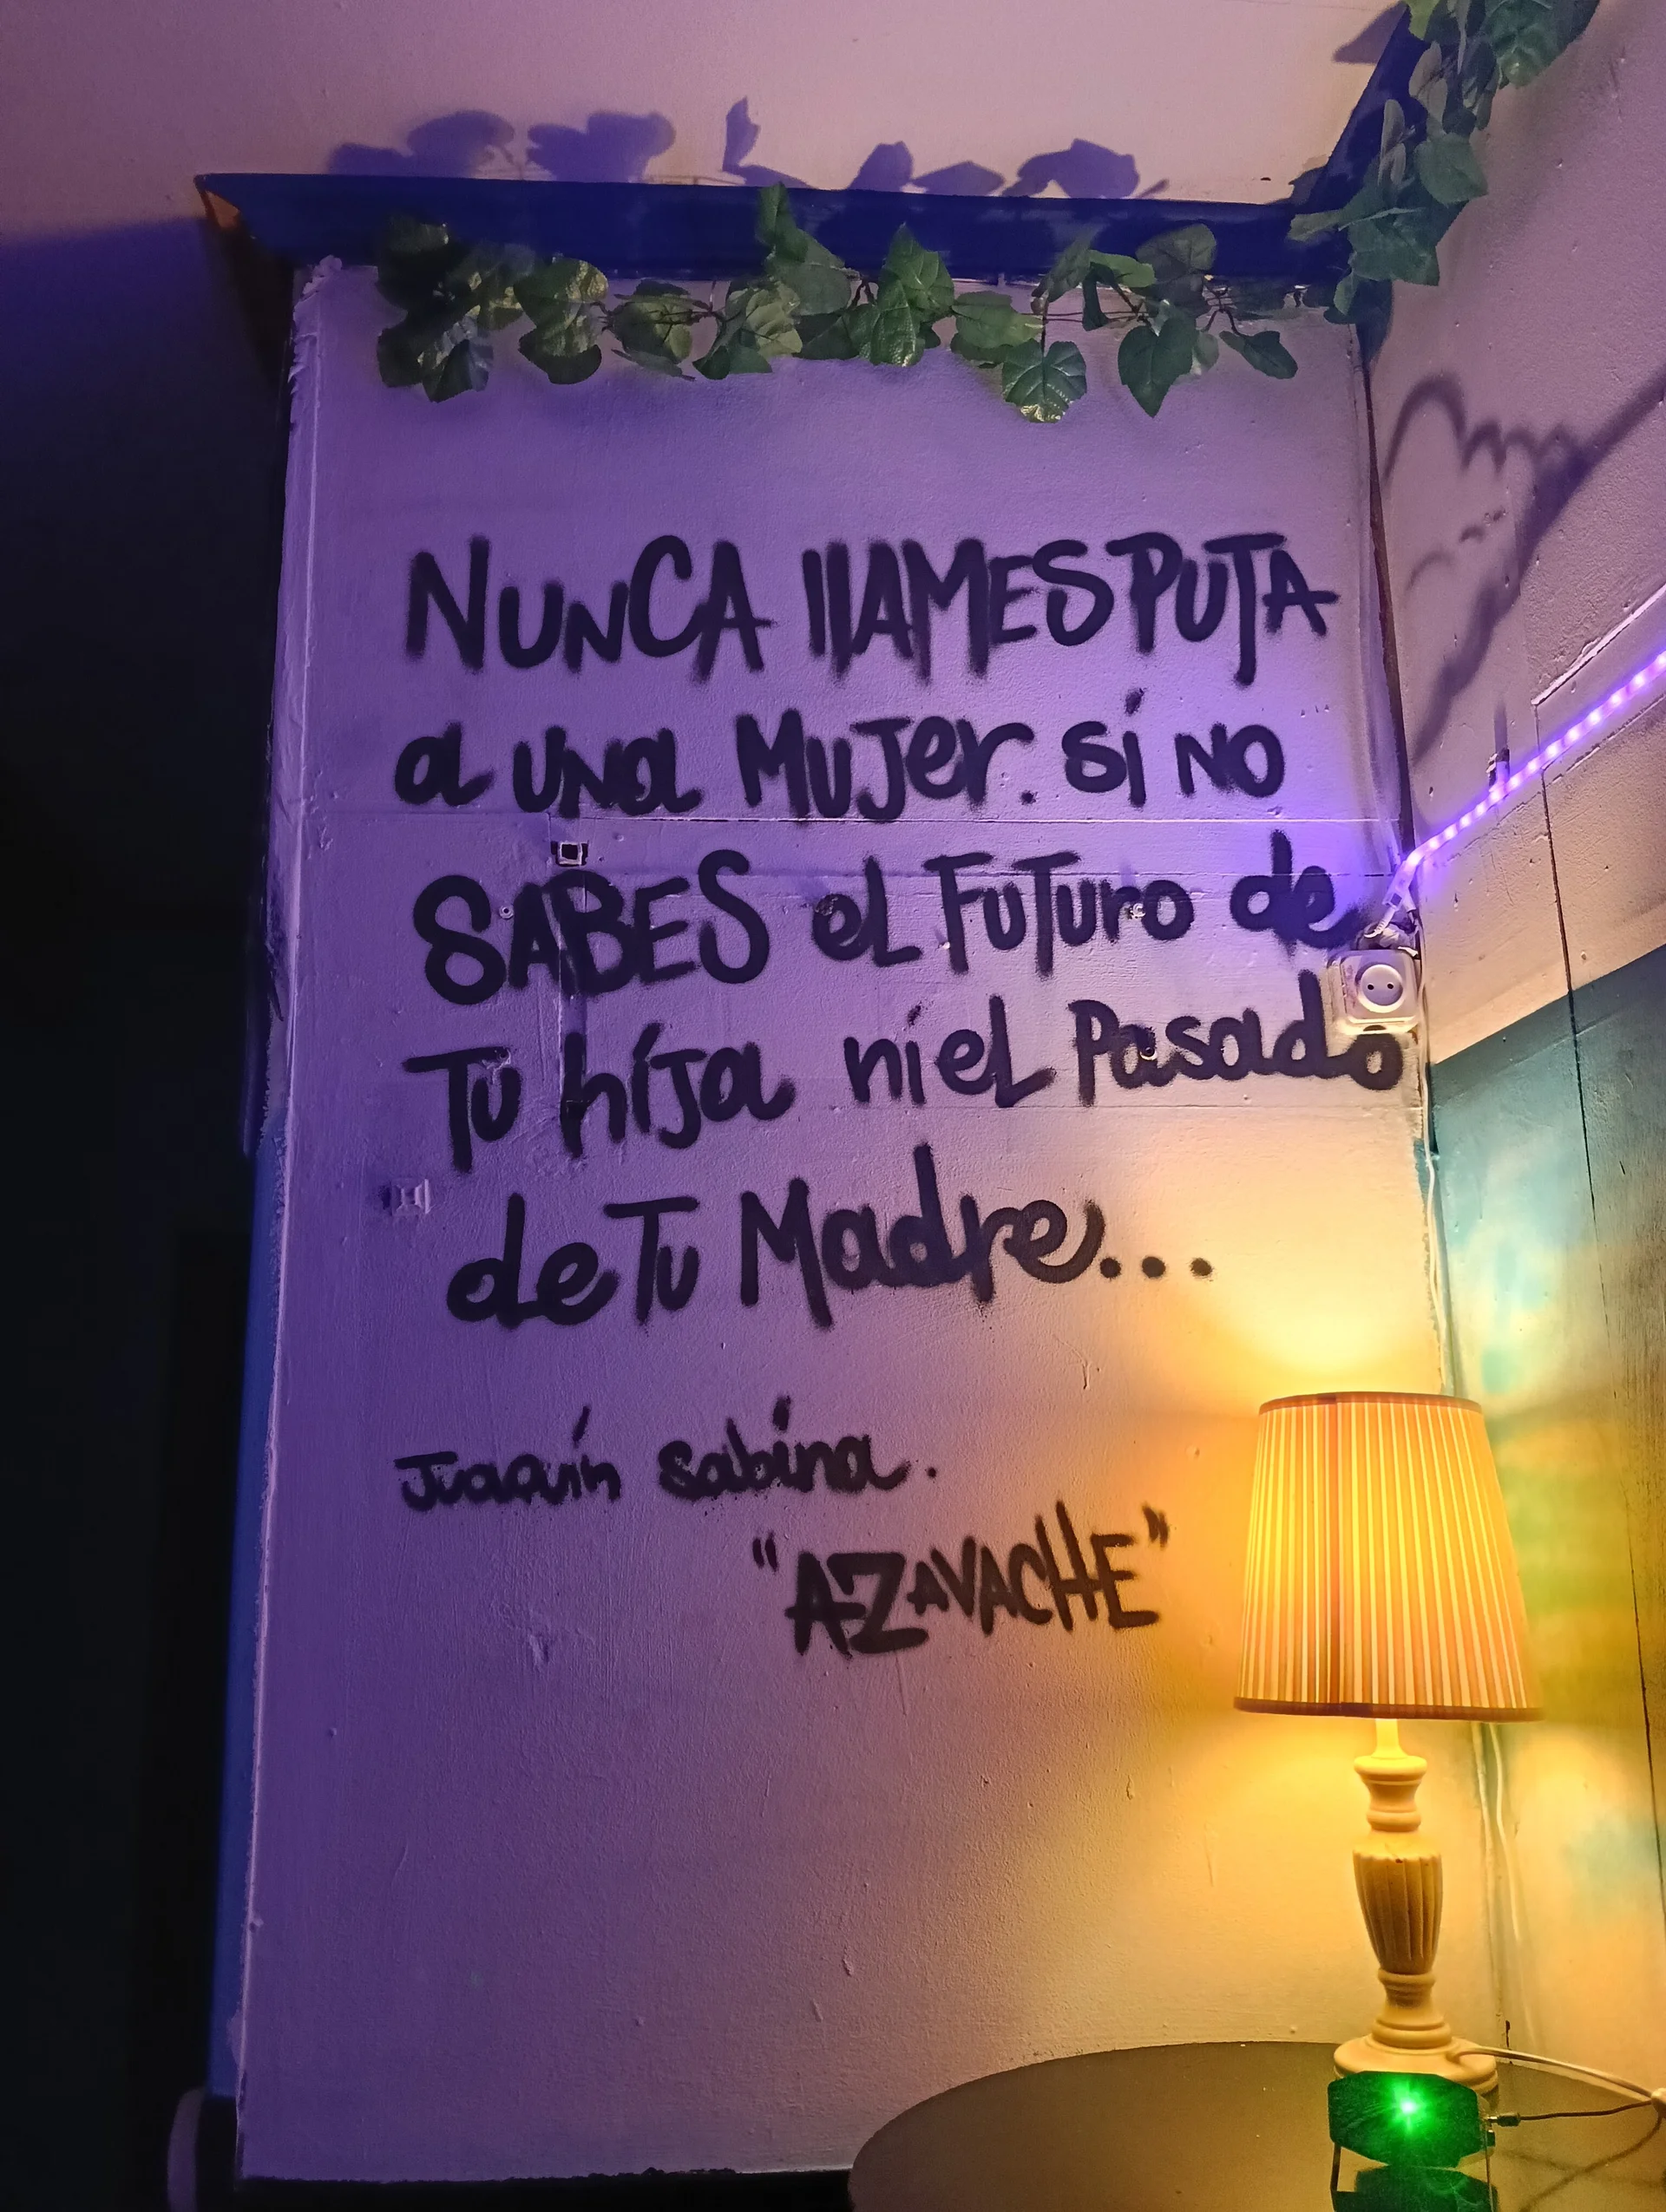 NUNCA llAMES PUTA
a UNa MuJer. sí NO
SABES eL FuTuro de
Tu híJa ní eL Pasado
de Tu Madre...
Juaquín Sabina.
"AZAVACHE"